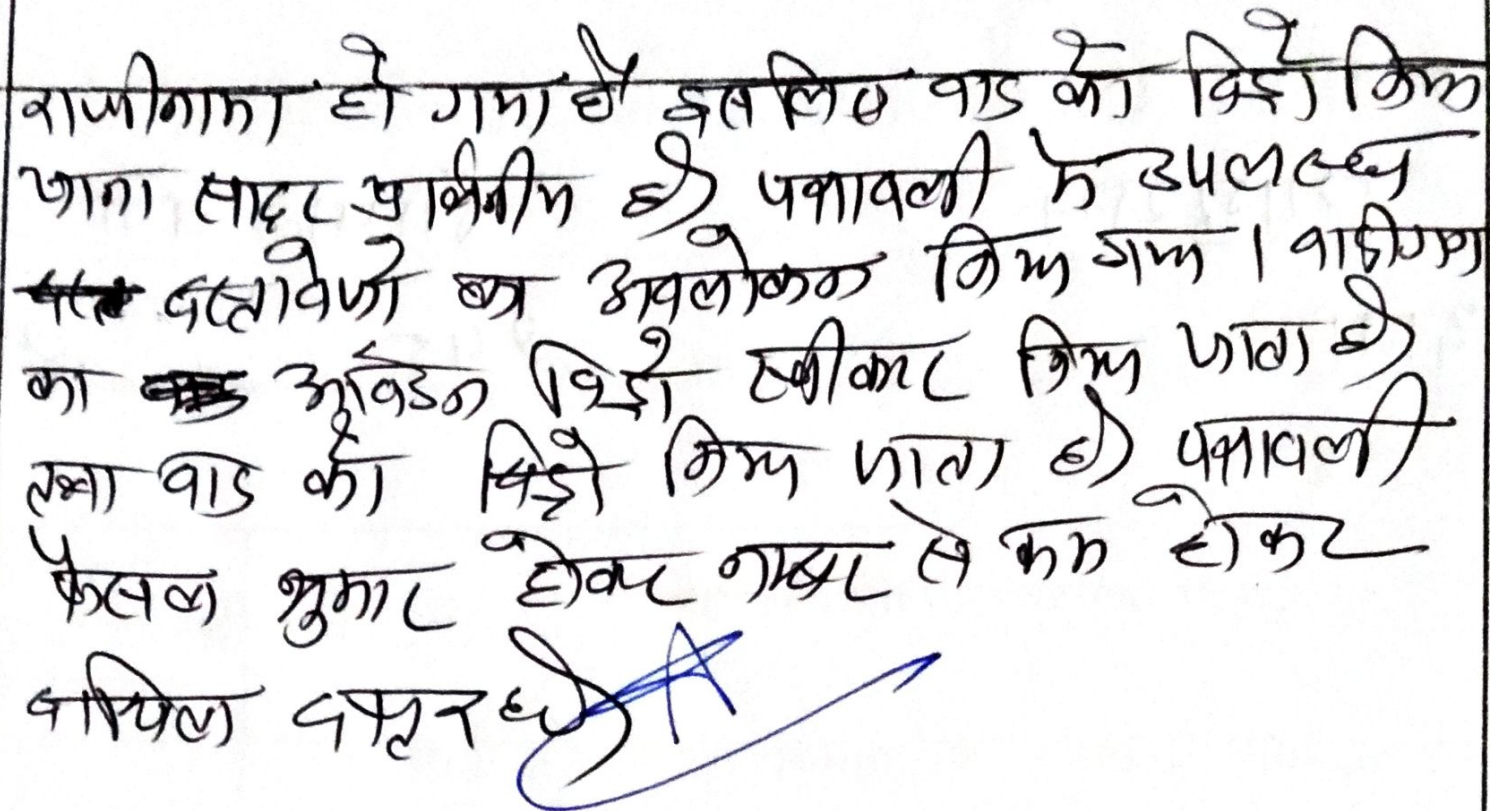 राजीनामा हो गया है इसलिए वाद को विड्रो किया
जाना सादर प्रार्थनीय है। पत्रावली मे उपलब्ध
दस्तावेजो का अवलोकन किया गया । वादीगण
का आवेदन विड्रो स्वीकार किया जाता है।
तथा वाद को विड्रो किया जाता है। पत्रावली
फैसल शुमार होकर नम्बर से कम होकर
दाखिल दफ्तर हो।